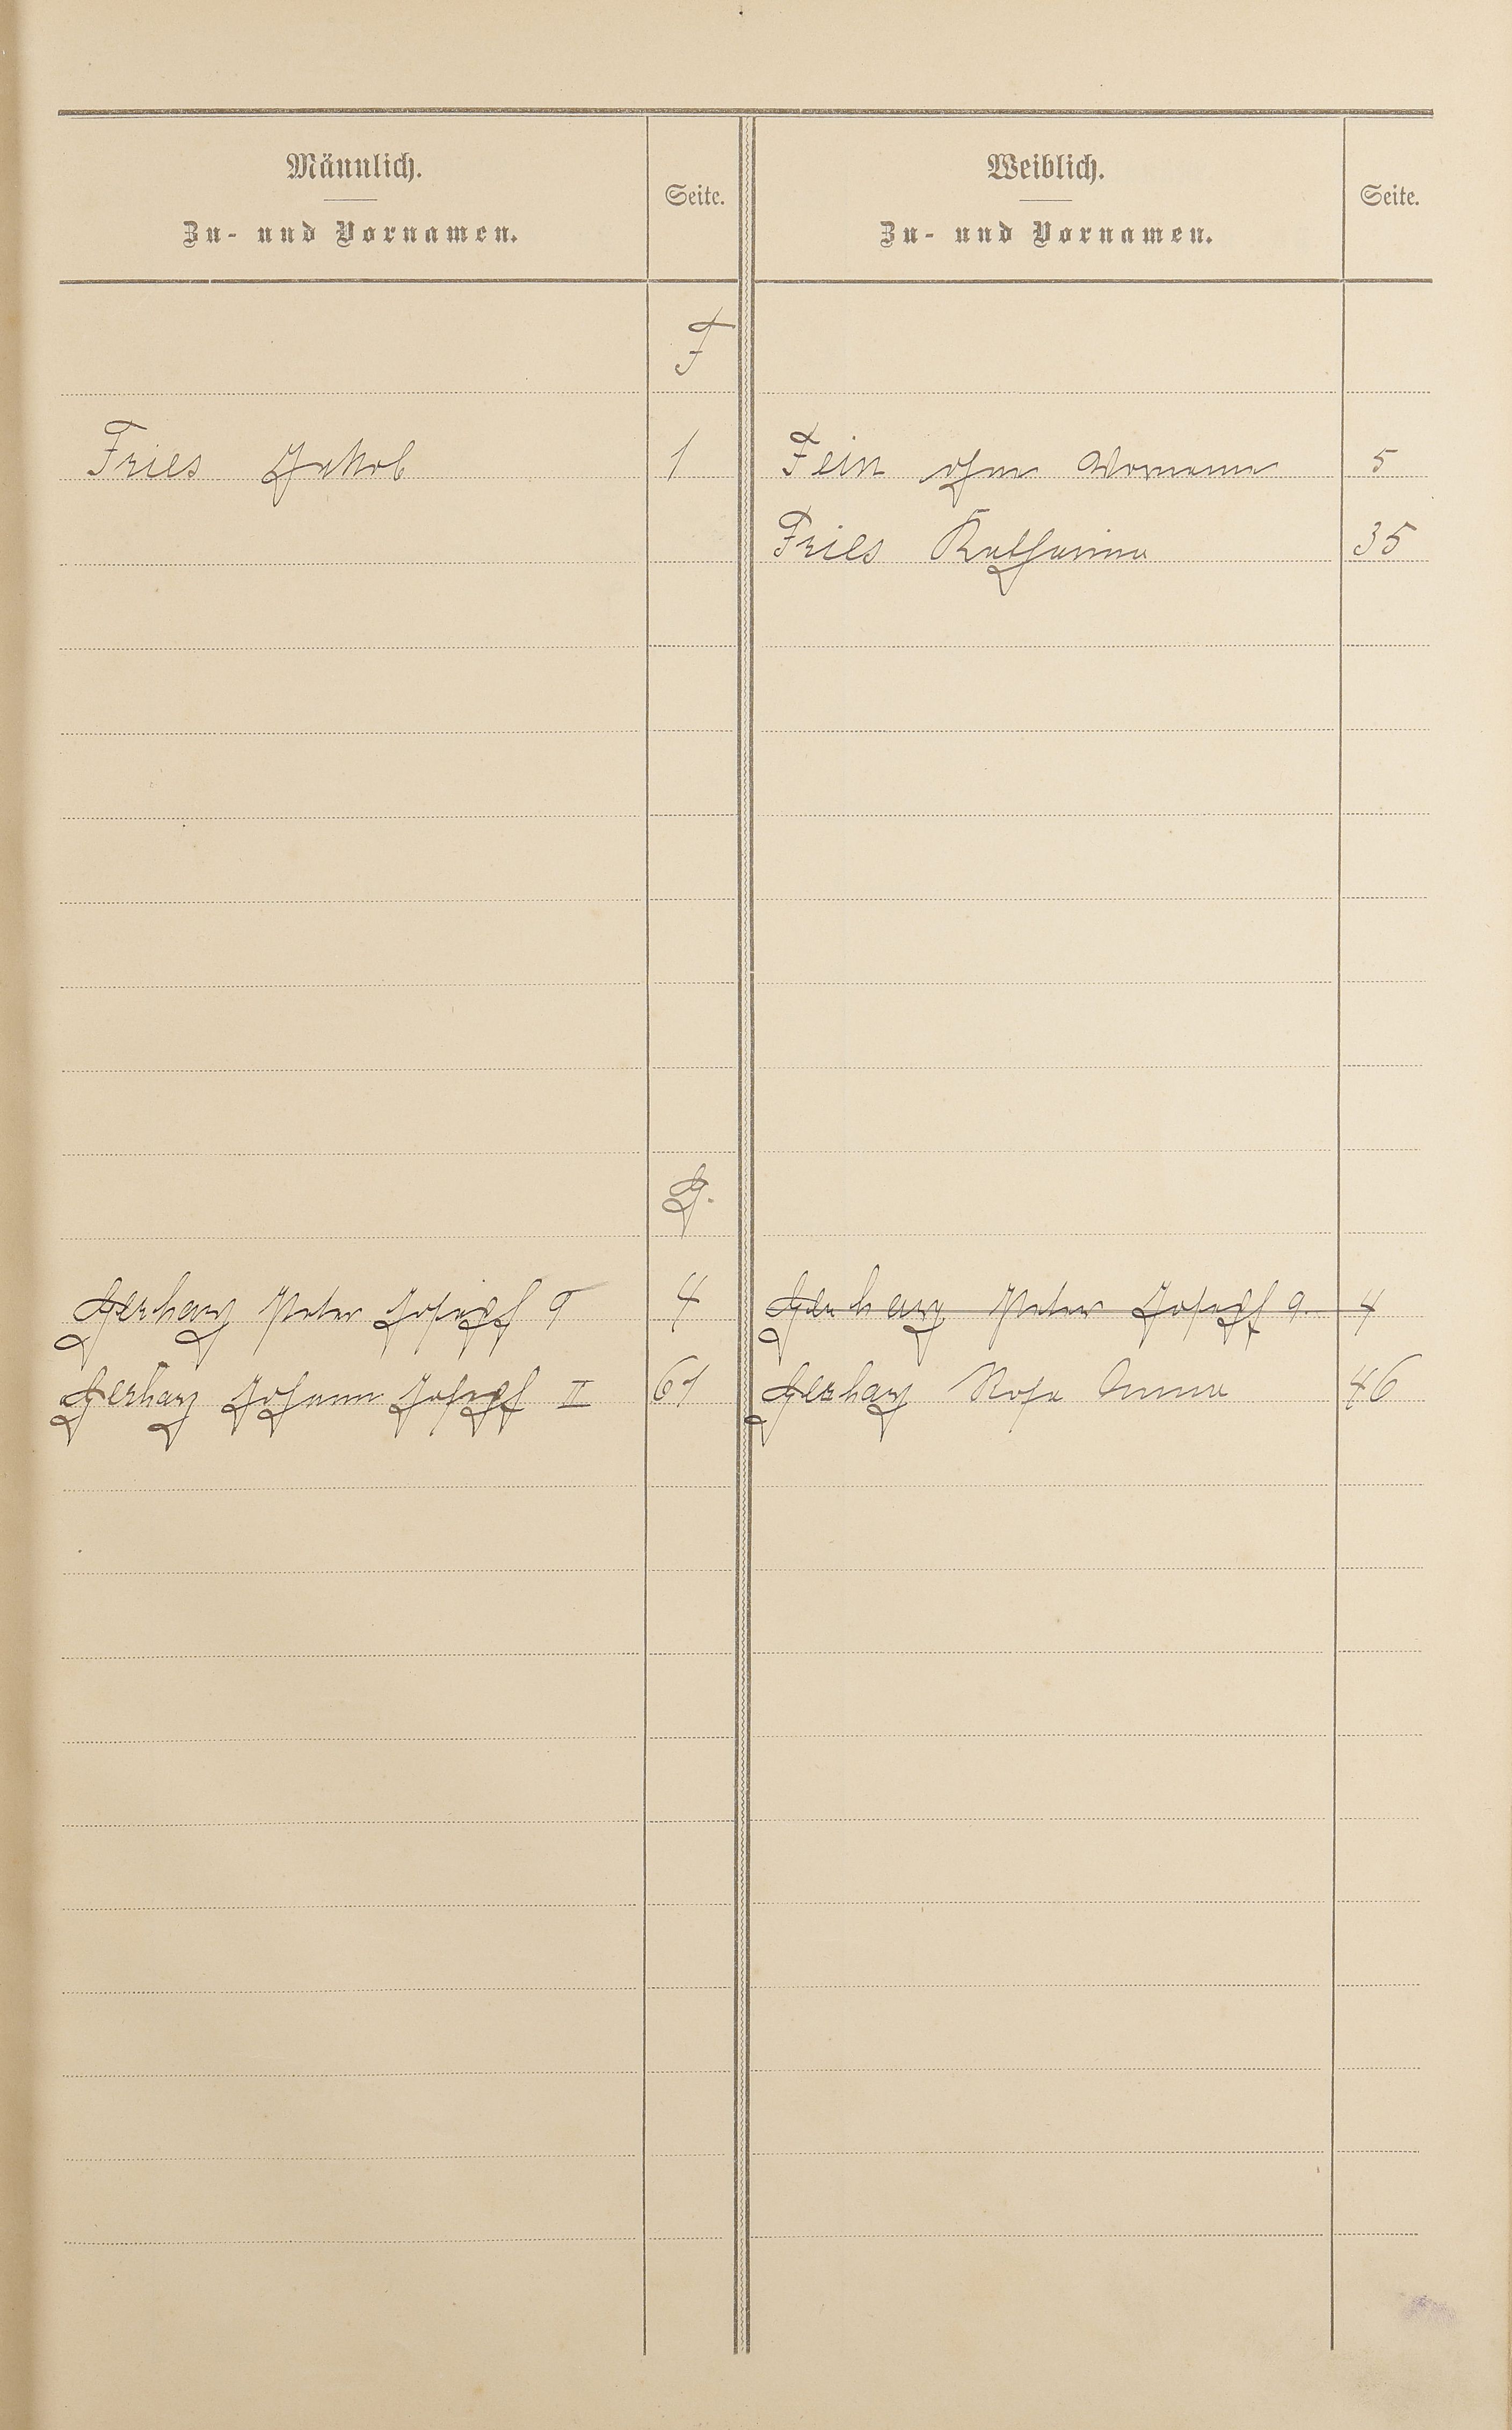 Männlich.
Zu- und Vornamen.
Seite.
Weiblich.
Zu- und Vornamen.
Seite.
F
Fries Jakob 1 Fein ohne Vornamen 5
Fries Katharina 35
G.
Gerharz Peter Josepf 9 4 Gerharz Peter Josepf 9. 4
Gerharz Johann Josepf II 61 Gerharz Rosa Anna 46